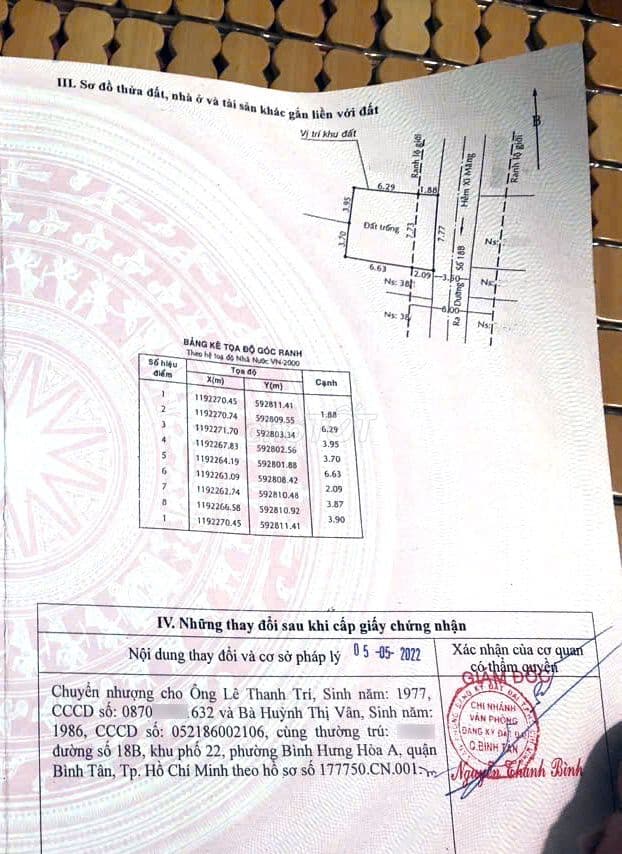 III. Sơ đồ thửa đất, nhà ở và tài sản khác gắn liền với đất
Vị trí khu đất
B
Ranh lộ giới
Hẻm Xi Măng
Ranh lộ giới
6.29
1.88
3.95
Đất trống
7.73
7.77
3.70
Ra Đường Số 18B
Ns:
6.63
2.09
3.50
Ns: 38
Ns:
6.00
Ns: 38
Ns:
BẢNG KÊ TỌA ĐỘ GÓC RANH
Theo hệ toạ độ Nhà Nước VN-2000
Số hiệu điểm Tọa độ Cạnh
X(m) Y(m)
1 1192270.45 592811.41
1.88
2 1192270.74 592809.55
6.29
3 1192271.70 592803.34
3.95
4 1192267.83 592802.56
3.70
5 1192264.19 592801.88
6.63
6 1192263.09 592808.42
2.09
7 1192262.74 592810.48
3.87
8 1192266.58 592810.92
3.90
1 1192270.45 592811.41
IV. Những thay đổi sau khi cấp giấy chứng nhận
Nội dung thay đổi và cơ sở pháp lý 05-05-2022
Xác nhận của cơ quan
có thẩm quyền
Chuyển nhượng cho Ông Lê Thanh Tri, Sinh năm: 1977,
CCCD số: 0870 .632 và Bà Huỳnh Thị Vân, Sinh năm:
1986, CCCD số: 052186002106, cùng thường trú:
đường số 18B, khu phố 22, phường Bình Hưng Hòa A, quận
Bình Tân, Tp. Hồ Chí Minh theo hồ sơ số 177750.CN.001
GIÁM ĐỐC
CHI NHÁNH
VĂN PHÒNG
ĐĂNG KÝ ĐẤT ĐAI
Q.BÌNH TÂN
Nguyễn Thánh Bình